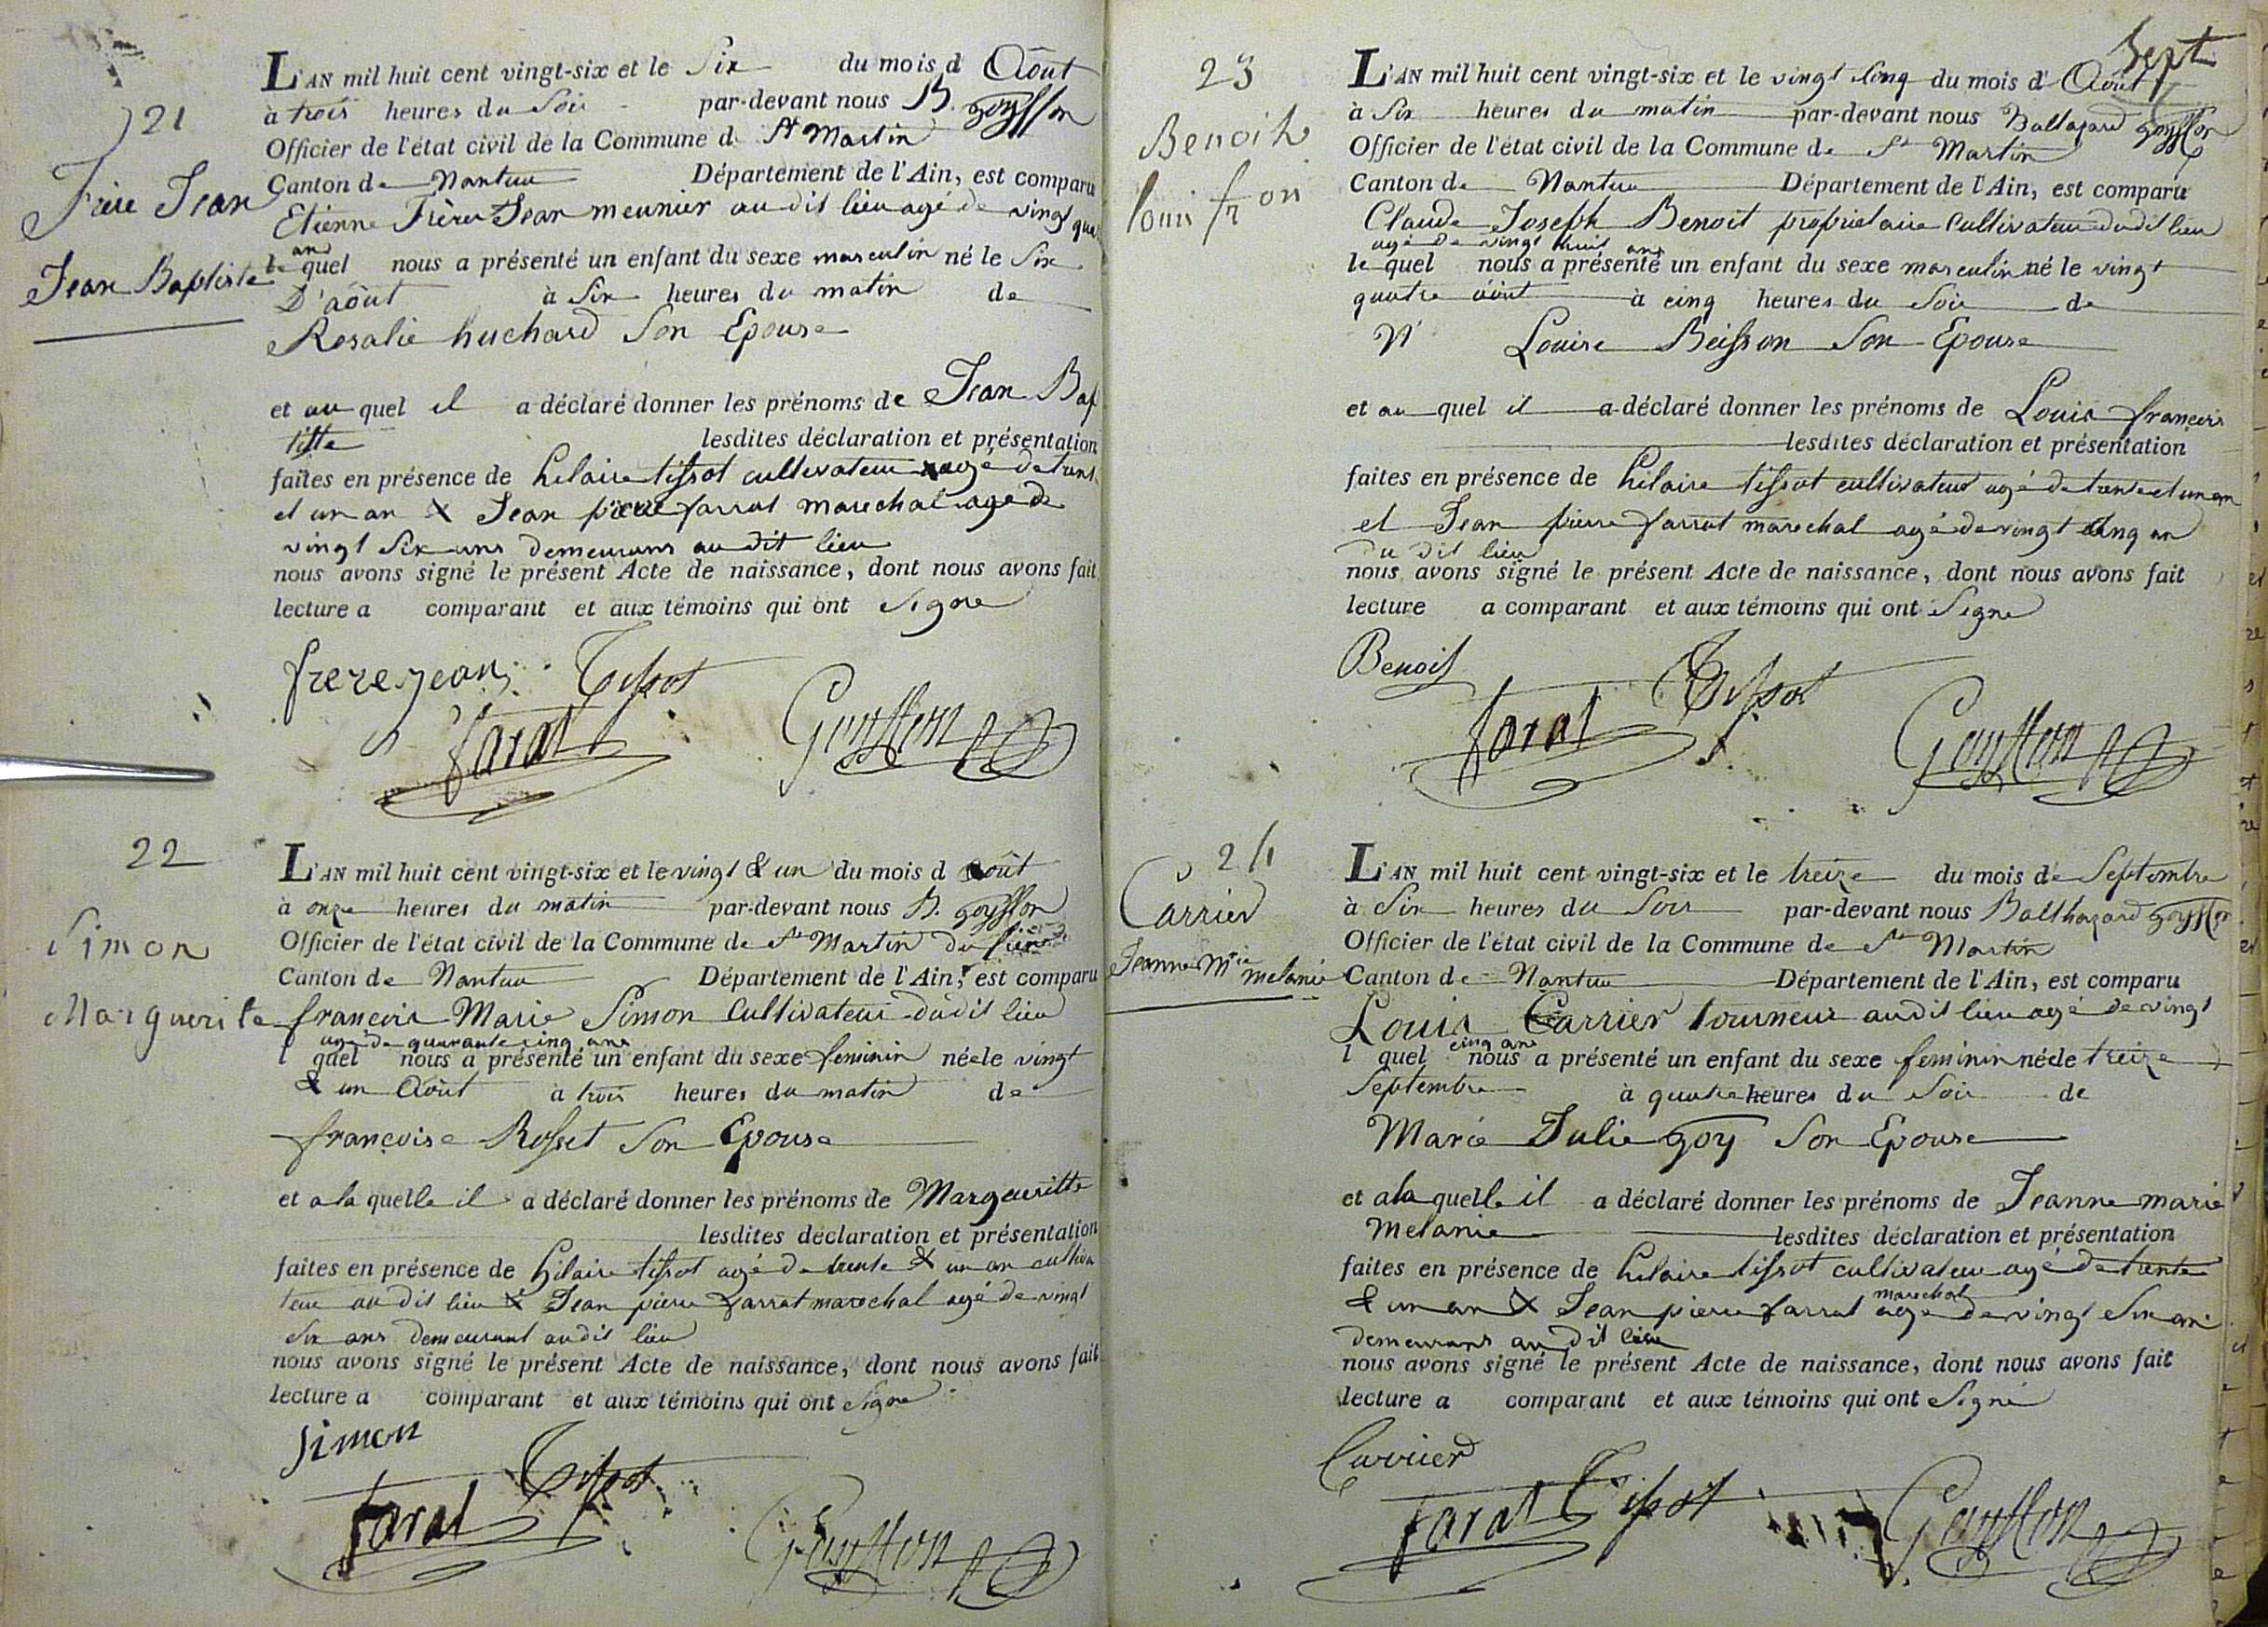 21
Frère Jean
Jean Baptiste
L'AN mil huit cent vingt-six et le Six du mois d Août
à trois heures du Soir par-devant nous B. goyffon
Officier de l'état civil de la Commune de St Martin
Canton de Nantua Département de l'Ain, est comparu
Etienne Frère Jean meunier au dit lieu agé de vingt qua
ans
le quel nous a présenté un enfant du sexe masculin né le Six
D'août à Six heures du matin de
Rosalie huchard Son Epouse
et au quel il a déclaré donner les prénoms de Jean Bap
tiste lesdites déclaration et présentation
faites en présence de hilaire tissot cultivateur agé de trent
et un an & Jean pierre farrat marechal agé de
vingt Six ans demeurans au dit lieu
nous avons signé le présent Acte de naissance, dont nous avons fait
lecture a comparant et aux témoins qui ont Signe
frerejean Tissot
farat Goyffon
22
Simon
Marguerite
L'AN mil huit cent vingt-six et le vingt & un du mois d août
à onze heures du matin par-devant nous B. goyffon
Officier de l'état civil de la Commune de St Martin du
Canton de Nantua Département de l'Ain, est comparu
françois Marie Simon Cultivateur dudit lieu
agé de quarante cinq ans
l quel nous a présenté un enfant du sexe feminin née le vingt
& un Août à trois heures du matin de
françoise Rosset Son Epouse
et a la quelle il a déclaré donner les prénoms de Margeuritte
lesdites déclaration et présentation
faites en présence de hilaire tissot agé de trente & un an cultiva
teur au dit lieu & Jean pierre farrat marechal agé de vingt
Six ans demeurant audit lieu
nous avons signé le présent Acte de naissance, dont nous avons fait
lecture a comparant et aux témoins qui ont Signe
Simon
farat Tissot Goyffon
Sept
23
Benoit
Louis fr on
L'AN mil huit cent vingt-six et le vingt Cinq du mois d' Août
à Six heures du matin par-devant nous Baltazard goyffon
Officier de l'état civil de la Commune de St Martin
Canton de Nantua Département de l'Ain, est comparu
Claude Joseph Benoit proprietaire Cultivateur dudit lieu
agé de vingt huit ans
le quel nous a présenté un enfant du sexe masculin né le vingt
quatre août à cinq heures du Soir de
Louise Beisson Son Epouse
et au quel il a déclaré donner les prénoms de Louis françois
lesdites déclaration et présentation
faites en présence de hilaire tissot cultivateur agé de trente et un an
et Jean pierre farrat marechal agé de vingt Cinq an
du dit lieu
nous avons signé le présent Acte de naissance, dont nous avons fait
lecture a comparant et aux témoins qui ont Signe
Benoit
farat Tissot Goyffon
24
Carrier
Jeanne Mie
melanie
L'AN mil huit cent vingt-six et le treize du mois de Septembre
à Six heures du Soir par-devant nous Balthazard goyffon
Officier de l'état civil de la Commune de St Martin
Canton de Nantua Département de l'Ain, est comparu
Louis Carrier tourneur audit lieu agé de vingt
cinq ans
l quel nous a présenté un enfant du sexe feminin née le treize
Septembre à quatre heures du Soir de
Marie Julie goy Son Epouse
et a la quelle il a déclaré donner les prénoms de Jeanne marie
Melanie lesdites déclaration et présentation
faites en présence de hilaire tissot cultivateur agé de trente
& un an & Jean pierre farrat marechal agé de vingt Six ans
demeurans au dit lieu
nous avons signé le présent Acte de naissance, dont nous avons fait
lecture a comparant et aux témoins qui ont Signé
Carrier
farat Tissot Goyffon